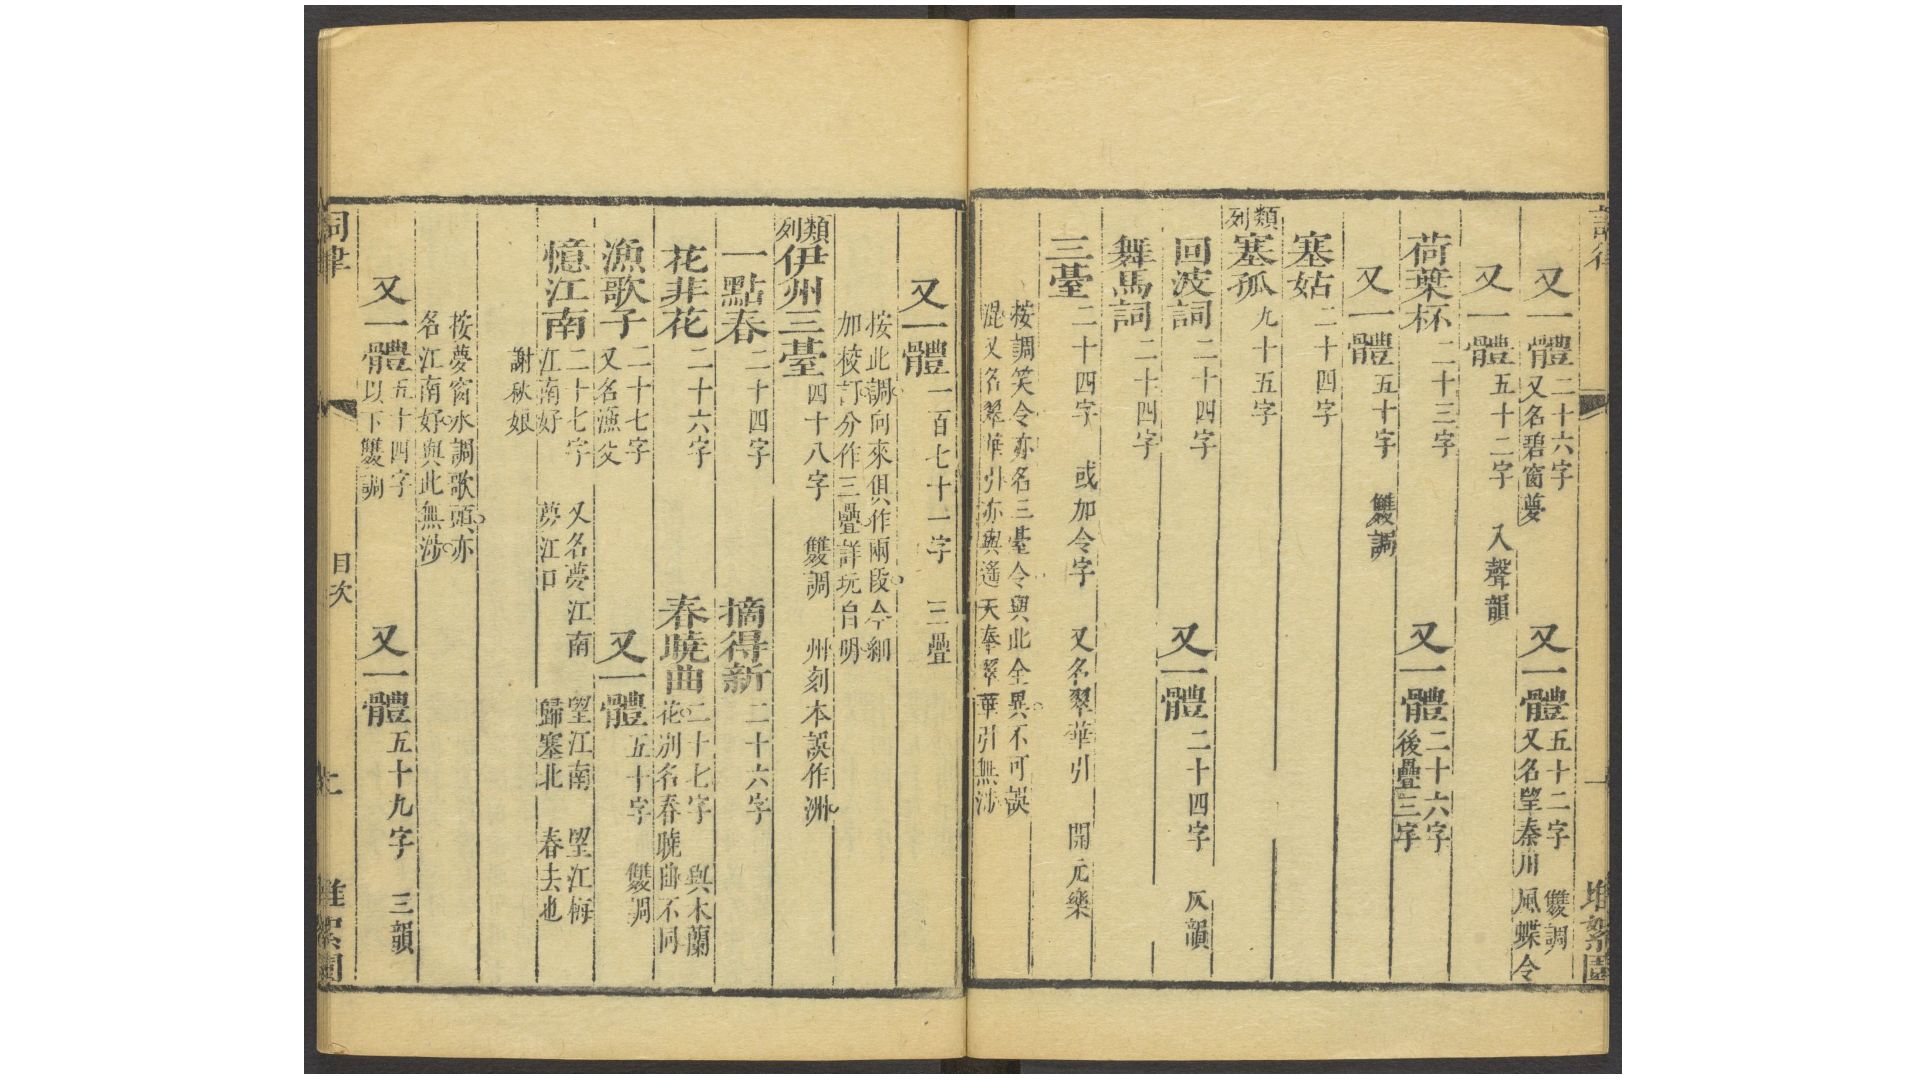 又一體 二十六字 又名碧窗夢
又一體 五十二字 雙調 又名望秦川 風蝶令
又一體 五十二字 入聲韻
荷葉杯 二十三字
又一體 二十六字 後疊三字
又一體 五十字 雙調
塞姑 二十四字
類列 塞孤 九十五字
回波詞 二十四字
又一體 二十四字 仄韻
舞馬詞 二十四字
三臺 二十四字 或加令字 又名翠華引 開元樂
按調笑令亦名三臺令與此全異不可誤
混又名翠華引亦與遙天奉翠華引無涉
又一體 一百七十一字 三疊
按此調向來俱作兩段今細
加校訂分作三疊詳玩自明
類列 伊州三臺 四十八字 雙調 州刻本誤作洲
一點春 二十四字
摘得新 二十六字
花非花 二十六字
春曉曲 二十七字 與木蘭
花別名春曉曲不同
漁歌子 二十七字 又名漁父
又一體 五十字 雙調
憶江南 二十七字 又名夢江南 望江南 望江梅
江南好 夢江口 歸塞北 春去也
謝秋娘
按夢窗水調歌頭亦
名江南好與此無涉
又一體 五十四字 以下雙調
又一體 五十九字 三韻
詞律
目次
堆絮園